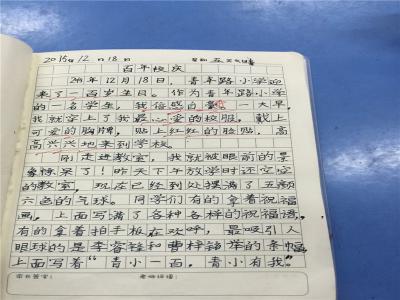 2015年12月18日 星期五 天气晴
百年校庆
2015年12月18日,青年路小学迎
来了一百岁生日。作为青年路小学
的一名学生,我倍感自豪。一大早,
我就穿上了我最心爱的校服,戴上
可爱的胸牌,贴上红红的脸贴,高
高兴兴地来到学校。
刚走进教室,我就被眼前的景
象惊呆了!昨天下午放学时还空空
的教室,现在已经到处摆满了五颜
六色的气球。同学们有的拿着祝福
画,上面写满了各种各样的祝福语,
有的拿着拍手板在欢呼,最吸引人
眼球的是李睿铨和曹梓铭举的条幅,
上面写着“青小一面,青小有我”。
家长签字: 老师评语: